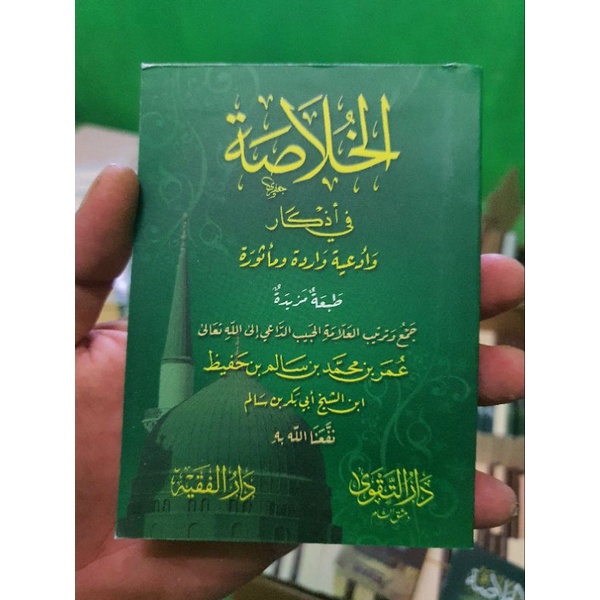 الخُلاَصَة
في أذكار
وأدعية واردة ومأثورة
طبعةٌ مزيدةٌ
جمع وترتيب العلامة الحبيب الداعي إلى الله تعالى
عمر بن محمد بن سالم بن حفيظ
ابن الشيخ أبي بكر بن سالم
نفعنا الله به
دار الفقيه
دار التقوى
دمشق الشام
الخلاصة